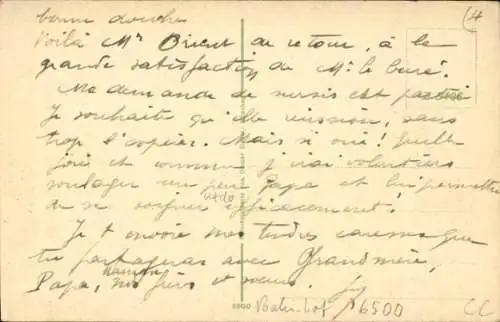 bonne douche
Voilà Mr Brient de retour, à la
grande satisfaction de Mr le curé.
Ma demande de sursis est partie
Je souhaite qu'elle réussisse, sans
trop l'espérer. Mais si oui! Quelle
joie et comme j'irai volontiers
soulager un peu Papa et lui permettre
de se soigner efficacement!
Je t'envoie mes tendres caresses que
tu partageras avec Grandmère,
Papa, Maman, mes frères et sœurs.
Bahnhof 6500